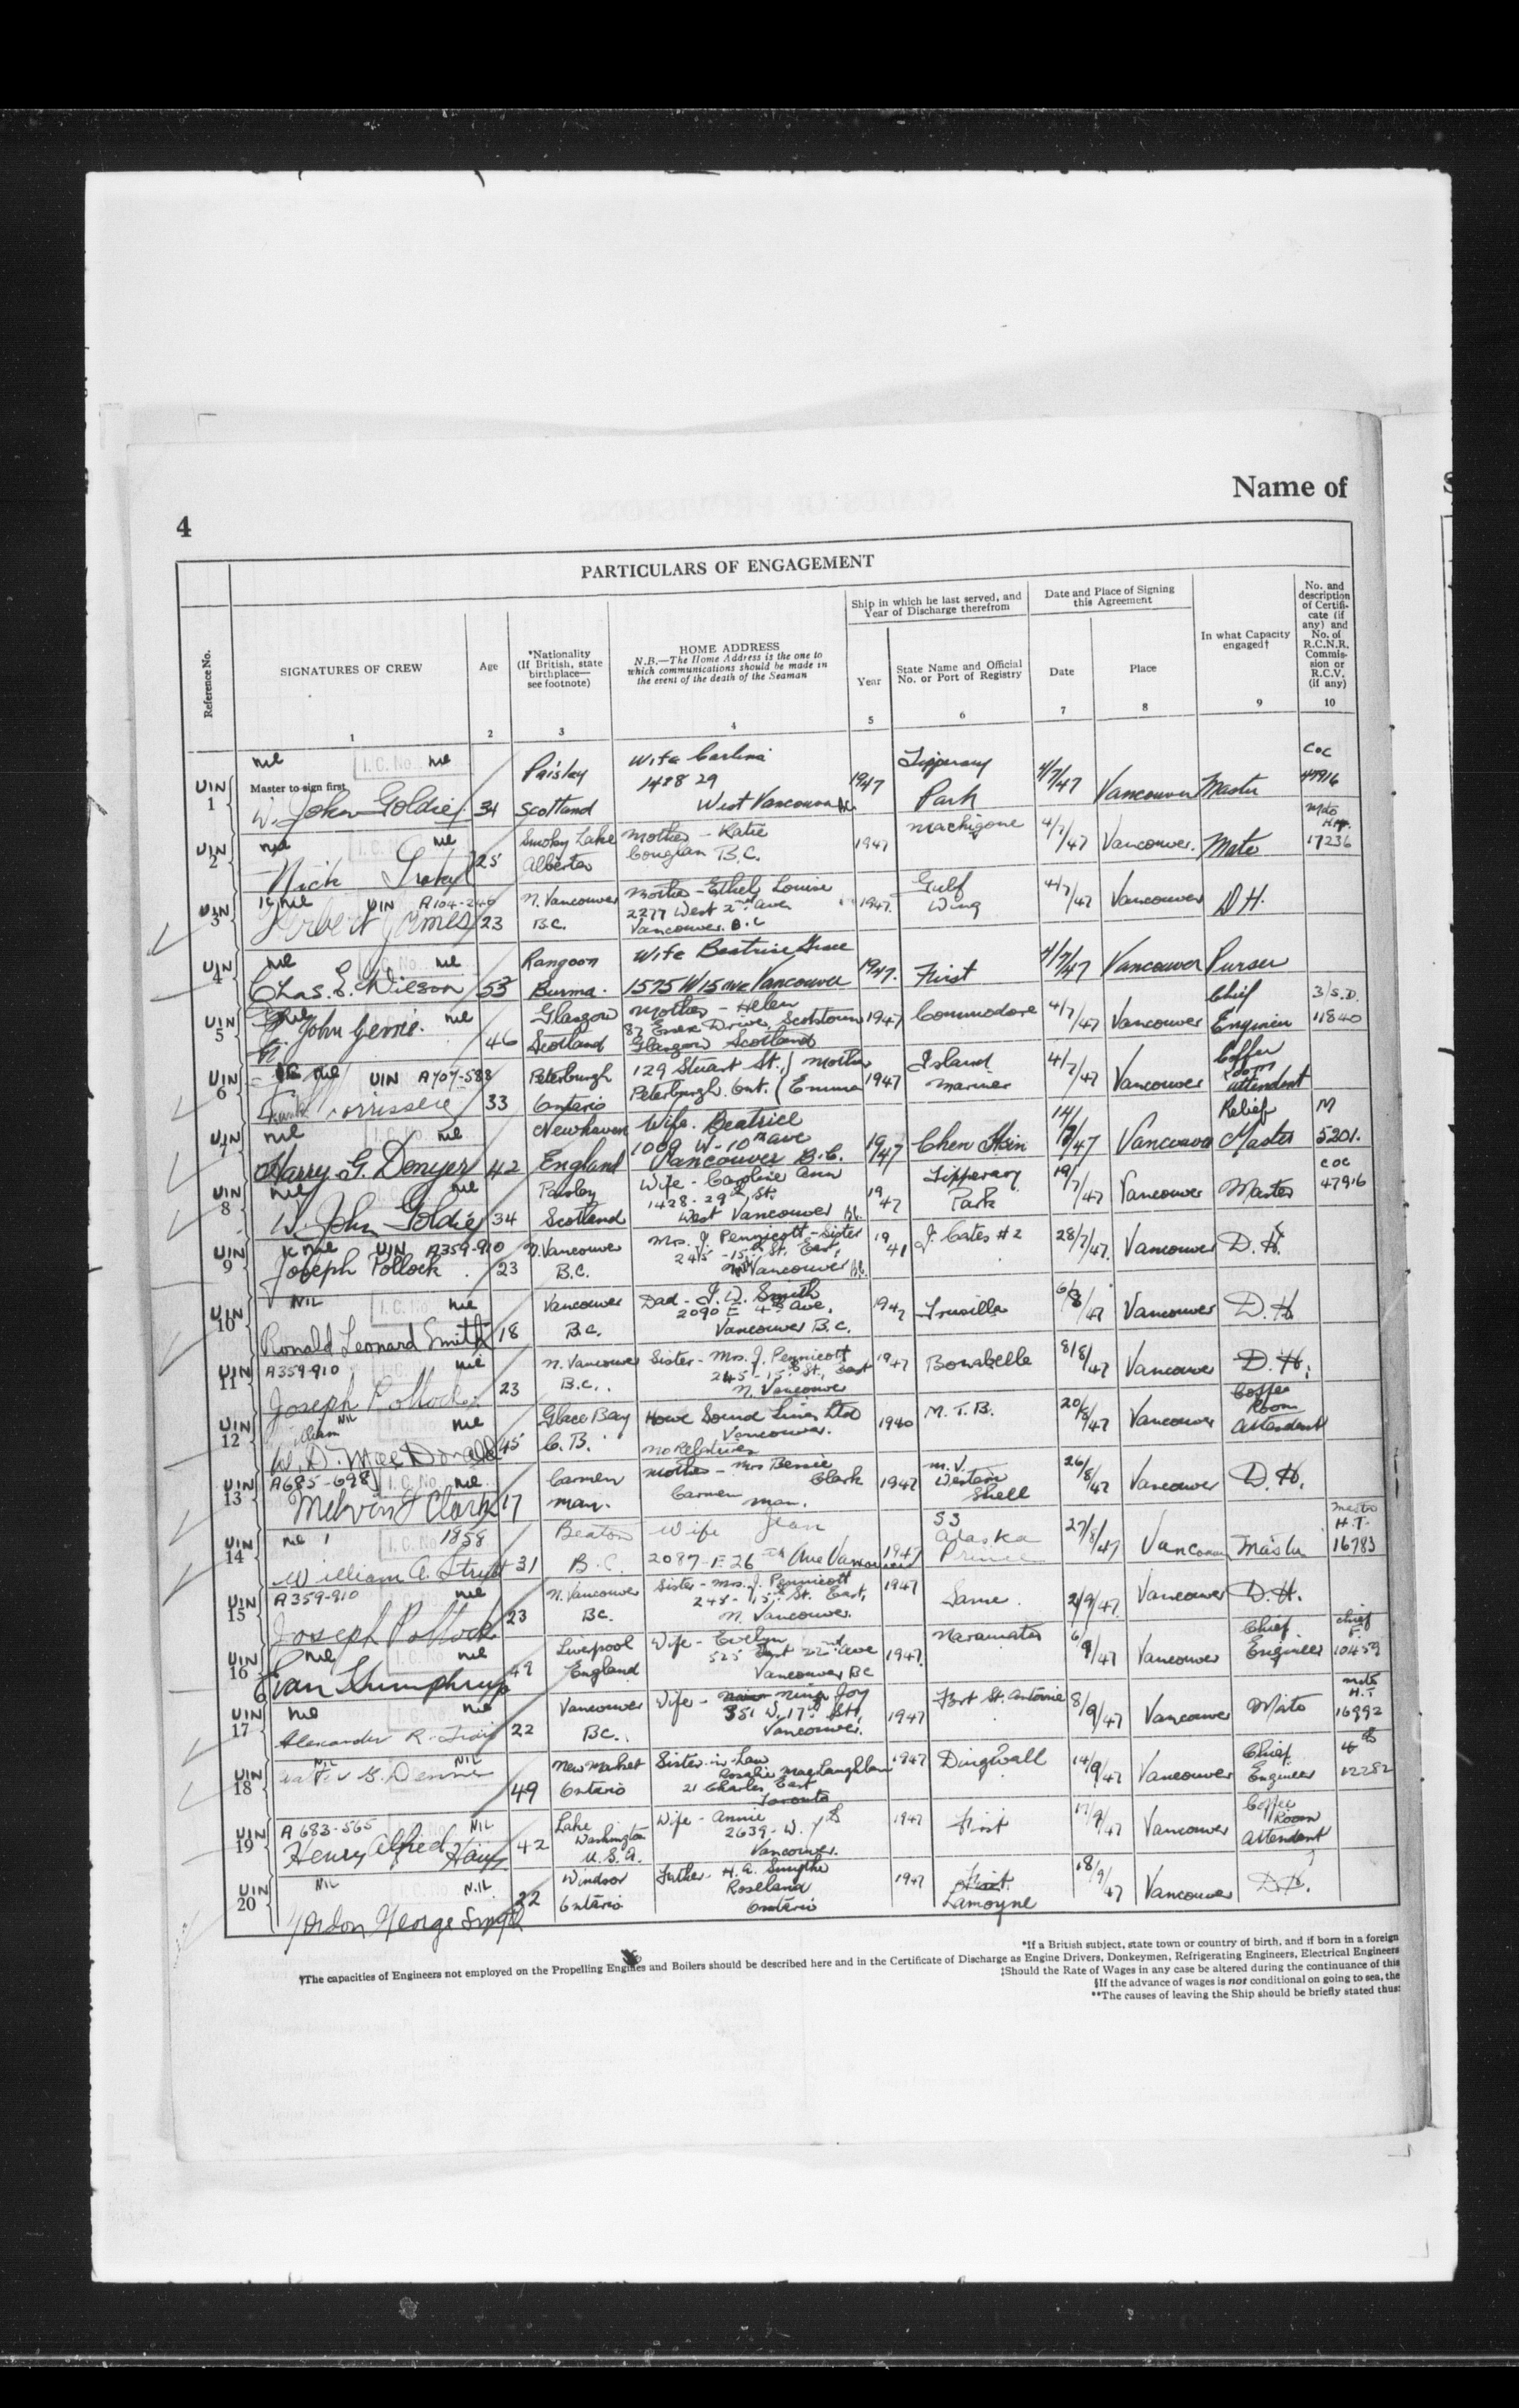 Name of
4
PARTICULARS OF ENGAGEMENT
Reference No.
SIGNATURES OF CREW
1
Age
2
*Nationality
(If British, state
birthplace—
see footnote)
3
HOME ADDRESS
N.B.—The Home Address is the one to
which communications should be made in
the event of the death of the Seaman
4
Ship in which he last served, and
Year of Discharge therefrom
Year
5
State Name and Official
No. or Port of Registry
6
Date and Place of Signing
this Agreement
Date
7
Place
8
In what Capacity
engaged†
9
No. and
description
of Certifi-
cate (if
any) and
No. of
R.C.N.R.
Commis-
sion or
R.C.V.
(if any)
10
UIN 1 nil I. C. No. nil
Master to sign first
W. John Goldie 34 Paisley Scotland
West Vancouver
1947 Tipperary Park 4/7/47 Vancouver Master COC 47916
UIN 2 nil nil
Nick 25 Smoky Lake Alberta
Mother - Katie
B.C.
1947 Machigone 4/7/47 Vancouver. Mate 17236
UIN 3 nil UIN A104-240
James 23 N. Vancouver B.C.
Mother - Ethel Louise
2277 West 2nd Ave
Vancouver. B.C
1947. Gulf Wing 4/7/47 Vancouver D.H.
UIN 4 nil nil
Chas. E. Wilson 53 Rangoon Burma.
Wife Beatrice Grace
1575 W 15 Ave Vancouver
1947. First 4/7/47 Vancouver Purser
UIN 5 nil nil
John Gerrie. 46 Glasgow Scotland
Mother - Helen
Drive, Scotstoun
Glasgow Scotland
1947 Commodore 4/7/47 Vancouver Chief Engineer 11840
UIN 6 nil UIN A707-588
33 Peterburgh Ontario
129 Stuart St., Mother
Peterburgh. Ont. Emma
1947 Island Mariner 4/7/47 Vancouver Coffee Room attendant
UIN 7 nil nil
Harry G. Denyer 42 Newhaven England
Wife. Beatrice
1009 W-10th ave
Vancouver B.C.
1947 14/7/47 Vancouver Relief Master M 5201.
UIN 8 nil nil
W. John Goldie 34 Paisley Scotland
Wife - Caroline Ann
1428-29th St.
West Vancouver B.C.
1947 Tipperary Park 19/7/47 Vancouver Master COC 47916
UIN 9 nil UIN A359-910
Joseph Pollock 23 N. Vancouver B.C.
Mrs. J. Pennicott - Sister
245-15th St. East,
Vancouver B.C.
1941 J. Cates #2 28/7/47. Vancouver D.H.
UIN 10 NIL I. C. No. nil
Ronald Leonard Smith 18 Vancouver B.C.
Dad - J. W. Smith
2090 E 4th Ave.
Vancouver B.C.
1947 6/8/47 Vancouver D.H.
UIN 11 A359-910 nil
Joseph Pollock 23 N. Vancouver B.C.
Sister - Mrs. J. Pennicott
245-15th St., East
N. Vancouver
1947 Bonabelle 8/8/47 Vancouver D.H.
UIN 12 William NIL nil
W. D. MacDonald 45 Glace Bay C.B.
Howe Sound Lines Ltd
Vancouver.
No Relatives
1940 M.T.B. 20/8/47 Vancouver Coffee Room Attendant
UIN 13 A685-698 I. C. No. nil
Melvin J Clark 17 Carmen Man.
Mother - Mrs Bessie Clark
Carmen Man.
1947 M.V. Western Shell 26/8/47 Vancouver D.H.
UIN 14 nil 1858
William A. 31 Beaton B.C.
Wife Jean
2087-E. 26th Ave Vancouver
1947 SS Alaska Prince 27/8/47 Vancouver Master H.T. 16783
UIN 15 A359-910 nil
Joseph Pollock 23 N. Vancouver BC.
Sister - Mrs. J. Pennicott
245-15th St. East,
N. Vancouver.
1947 Same. 2/9/47 Vancouver D.H.
UIN 16 nil nil
Evan Humphrys 49 Liverpool England
Wife - Evelyn
525 East 22nd Ave
Vancouver BC
1947. Naramata 6/9/47 Vancouver Chief Engineer 10459
UIN 17 nil nil
Alexander R. 22 Vancouver BC.
Wife - Joy
351 W. 17th St,
Vancouver.
1947 Fort St. Antoine 8/9/47 Vancouver Mate H.T. 16992
UIN 18 NIL NIL
49 New Market Ontario
Sister in Law
Rosalie MacLaughlan
21 Charles East
Toronto
1947 Dingwall 14/9/47 Vancouver Chief Engineer 12282
UIN 19 A 683-565 NIL
Henry Alfred 42 Lake Washington U.S.A.
Wife - Annie
2639-W.
Vancouver.
1947 First 17/9/47 Vancouver Coffee Room Attendant
UIN 20 NIL NIL
Gordon George 22 Windsor Ontario
Father. H. A. Smythe
Roseland
Ontario
1947 Lamoyne 18/9/47 Vancouver D.H.
*If a British subject, state town or country of birth, and if born in a foreign
†The capacities of Engineers not employed on the Propelling Engines and Boilers should be described here and in the Certificate of Discharge as Engine Drivers, Donkeymen, Refrigerating Engineers, Electrical Engineers
‡Should the Rate of Wages in any case be altered during the continuance of this
§If the advance of wages is not conditional on going to sea, the
**The causes of leaving the Ship should be briefly stated thus: